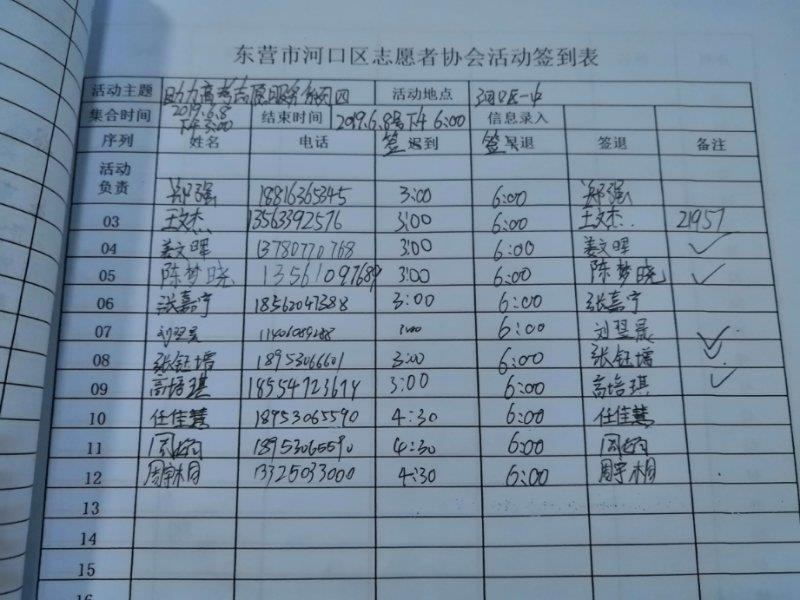 东营市河口区志愿者协会活动签到表
活动主题 助力高考志愿服务 活动地点 河口区一中
集合时间 2019.6.8 下午3:00 结束时间 2019.6.8号下午6:00 信息录入
序列 姓名 电话 签 迟到 签 早退 签退 备注
活动
负责
郑强 18816365345 3:00 6:00 郑强
03 王文杰 13563392576 3:00 6:00 王文杰 21957
04 姜文晖 13780770768 3:00 6:00 姜文晖 ✓
05 陈梦晓 13561097689 3:00 6:00 陈梦晓 ✓
06 张嘉宁 18562047388 3:00 6:00 张嘉宁
07 刘翌晨 6:00 刘翌晨 ✓
08 张钰壻 18953066601 3:00 6:00 张钰壻 ✓
09 高培琪 18554723614 3:00 6:00 高培琪 ✓
10 任佳慧 18953065590 4:30 6:00 任佳慧
11 18953065590 4:30 6:00
12 周宇桐 13325033000 4:30 6:00 周宇桐
13
14
15
16